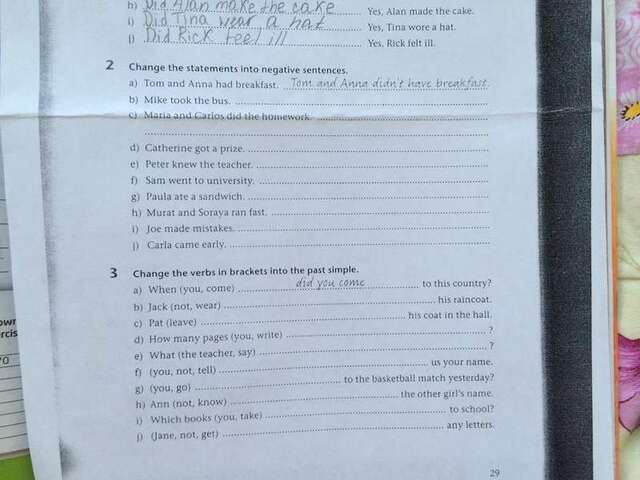 h) Did Alan make the cake Yes, Alan made the cake.
i) Did Tina wear a hat Yes, Tina wore a hat.
j) Did Rick feel ill Yes, Rick felt ill.
2 Change the statements into negative sentences.
a) Tom and Anna had breakfast. Tom and Anna didn't have breakfast.
b) Mike took the bus.
c) Maria and Carlos did the homework.
d) Catherine got a prize.
e) Peter knew the teacher.
f) Sam went to university.
g) Paula ate a sandwich.
h) Murat and Soraya ran fast.
i) Joe made mistakes.
j) Carla came early.
3 Change the verbs in brackets into the past simple.
a) When (you, come) did you come to this country?
b) Jack (not, wear) his raincoat.
c) Pat (leave) his coat in the hall.
d) How many pages (you, write) ?
e) What (the teacher, say) ?
f) (you, not, tell) us your name.
g) (you, go) to the basketball match yesterday?
h) Ann (not, know) the other girl's name.
i) Which books (you, take) to school?
j) (Jane, not, get) any letters.
29